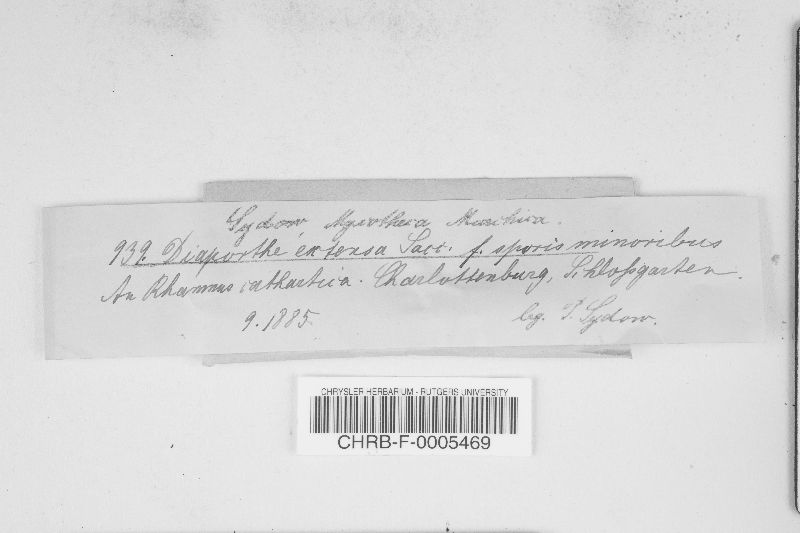 Sydow, Mycotheca Marchica.
939. Diaporthe extensa Sacc. f. sporis minoribus
An Rhamnus cathartica. Charlottenburg, Schloßgarten.
9.1885.
leg. P. Sydow.
CHRYSLER HERBARIUM - RUTGERS UNIVERSITY
CHRB-F-0005469